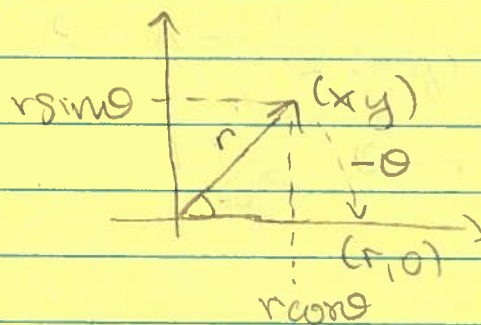 r sinθ
(x y)
r
-θ
(r, 0)
r cosθ